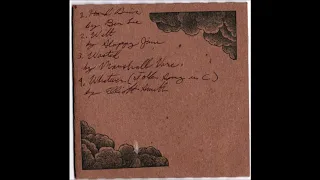 2. Hard Drive
by Ben Lee
2. Will
by Happy Jane
3. Wasted
by Marshall Vore
4. Whatever (Folk Song in C)
by Elliott Smith